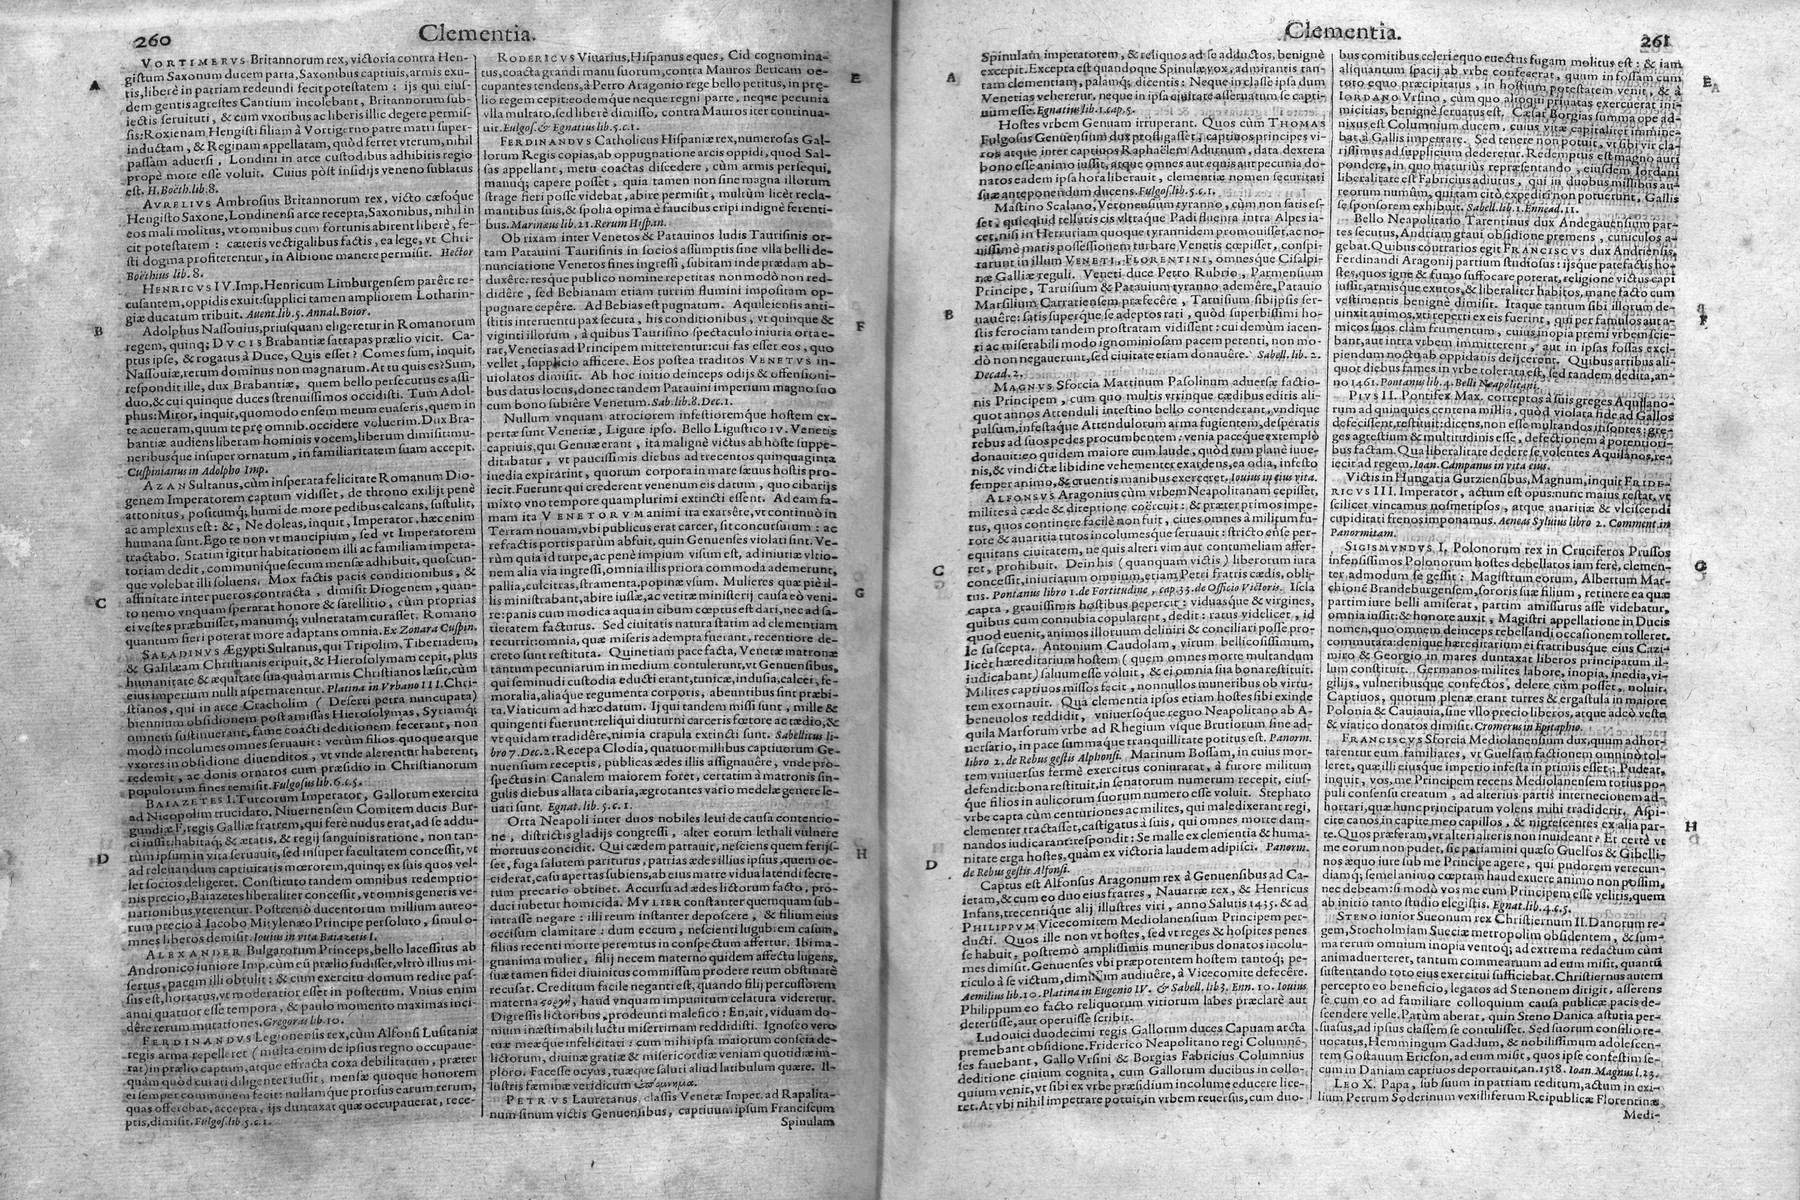 260
Clementia.
VORTIMERVS Britannorum rex, victoria contra Hen-
gistum Saxonum ducem parta, Saxonibus captiuis, armis exu-
tis, liberè in patriam redeundi fecit potestatem : ijs qui eius-
dem gentis agrestes Cantium incolebant, Britannorum sub-
iectis seruituti, & cum vxoribus ac liberis illic degere permis-
sis: Roxienam Hengisti filiam à Vortigerno patre matri super-
inductam, & Reginam appellatam, quòd ferret vterum, nihil
passam aduersi, Londini in arce custodibus adhibitis regio
propè more esse voluit. Cuius pòst insidijs veneno sublatus
est. H. Boëth. lib. 8.
AVRELIVS Ambrosius Britannorum rex, victo cæsoque
Hengisto Saxone, Londinensi arce recepta, Saxonibus, nihil in
eos mali molitus, vt omnibus cum fortunis abirent liberè, fe-
cit potestatem : cæteris vectigalibus factis, ea lege, vt Chri-
sti dogma profiterentur, in Albione manere permisit. Hector
Boëthius lib. 8.
HENRICVS IV. Imp. Henricum Limburgensem parêre re-
cusantem, oppidis exuit: supplici tamen ampliorem Lotharin-
giæ ducatum tribuit. Auent. lib. 5. Annal. Boior.
Adolphus Nassouius, priusquam eligeretur in Romanorum
regem, quinq; DVCIS Brabantiæ satrapas prælio vicit. Ca-
ptus ipse, & rogatus à Duce, Quis esset? Comes sum, inquit,
Nassouiæ, rerum dominus non magnarum. At tu quis es? Sum,
respondit ille, dux Brabantiæ, quem bello persecutus es assi-
duo, & cui quinque duces strenuissimos occidisti. Tum Adol-
phus: Miror, inquit, quomodo ensem meum euaseris, quem in
te acueram, quum te pręomnib. occidere voluerim. Dux Bra-
bantiæ audiens liberam hominis vocem, liberum dimisit: mu-
neribusque insuper ornatum, in familiaritatem suam accepit.
Cuspinianus in Adolpho Imp.
AZAN Sultanus, cùm insperata felicitate Romanum Dio-
genem Imperatorem captum vidisset, de throno exilijt penè
attonitus, positumq; humi de more pedibus calcans, sustulit,
ac amplexus est: &, Ne doleas, inquit, Imperator, hæc enim
humana sunt. Ego te non vt mancipium, sed vt Imperatorem
tractabo. Statim igitur habitationem illi ac familiam impera-
toriam dedit, communique secum mensæ adhibuit, quoscun-
que volebat illi soluens. Mox factis pacis conditionibus, &
affinitate inter pueros contracta, dimisit Diogenem, quan-
to nemo vnquam sperarat honore & satellitio, cùm proprias
ei vestes præbuisset, manumq; vulneratam curasset. Romano
quantum fieri poterat more adaptans omnia. Ex Zonara Cuspin.
SALADINVS Ægypti Sultanus, qui Tripolim, Tiberiadem,
& Galilæam Christianis eripuit, & Hierosolymam cepit, plus
humanitate & æquitate sua quàm armis Christianos læsit, cùm
eius imperium nulli aspernarentur. Platina in Vrbano III. Chri-
stianos, qui in arce Cracholim (Deserti petra nuncupata)
biennium obsidionem post amissas Hierosolymas, Syriamq;
omnem sustinuerant, fame coacti deditionem fecerant, non
modò incolumes omnes seruauit : verùm filios quoque atque
vxores in obsidione diuenditos, vt vnde alerentur haberent,
redemit, ac donis ornatos cum præsidio in Christianorum
populorum fines remisit. Fulgosius lib. 6. c. 5.
BAIAZETES I. Turcorum Imperator, Gallorum exercitu
ad Nicopolim trucidato, Niuernensem Comitem ducis Bur-
gundiæ F. regis Galliæ fratrem, qui ferè nudus erat, ad se addu-
ci iussit: habitaq; & ætatis, & regij sanguinis ratione, non tan-
tùm ipsum in vita seruauit, sed insuper facultatem concessit, vt
ad releuandum captiuitatis mœrorem, quinq; ex suis quos vel-
let socios deligeret. Constituto tandem omnibus redemptio-
nis precio, Baiazetes liberaliter concessit, vt omnis generis ve-
nationibus vterentur. Postremò ducentorum millium aureo-
rum precio à Iacobo Mitylenæo Principe persoluto, simul o-
mnes liberos demisit. Iouius in vita Baiazetis I.
ALEXANDER Bulgarorum Princeps, bello lacessitus ab
Andronico iuniore Imp. cùm eũ prælio fudisset, vltrò illius mi-
sertus, pacem illi obtulit : & cum exercitu domum redire pas-
sus est, hortatus, vt moderatior esset in posterum. Vnius enim
anni quatuor esse tempora, & paulo momento maximas inci-
dêre rerum mutationes. Gregoras lib. 10.
FERDINANDVS Legionensis rex, cùm Alfonsi Lusitaniæ
regis arma repelleret (multa enim de ipsius regno occupaue-
rat) in prælio captum, atque effracta coxa debilitatum, præter
quàm quòd curari diligenter iussit, mensæ quoque honorem
ei semper communem fecit: nullamque prorsus earum rerum,
quas offerebat, accepta, ijs duntaxat quæ occupauerat, rece-
ptis, dimisit. Fulgos. lib. 5. c. 1.
RODERICVS Viuarius, Hispanus eques, Cid cognomina-
tus, coacta grandi manu suorum, contra Mauros Beticam oc-
cupantes tendens, à Petro Aragonio rege bello petitus, in prę-
lio regem cepit: eodemque neque regni parte, neque pecunia
vlla multato, sed liberè dimisso, contra Mauros iter continua-
uit. Fulgos. & Egnatius lib. 5. c. 1.
FERDINANDVS Catholicus Hispaniæ rex, numerosas Gal-
lorum Regis copias, ab oppugnatione arcis oppidi, quod Sal-
sas appellant, metu coactas discedere, cùm armis persequi,
manuq; capere posset, quia tamen non sine magna illorum
strage fieri posse videbat, abire permisit, multùm licèt recla-
mantibus suis, & spolia opima è faucibus eripi indignè ferenti-
bus. Marinæus lib. 21. Rerum Hispan.
Ob rixam inter Venetos & Patauinos ludis Taurisinis or-
tam Patauini Taurisinis in socios assumptis sine vlla belli de-
nunciatione Venetos fines ingressi, subitam inde prædam ab-
duxêre: resque publico nomine repetitas non modò non red-
didêre, sed Bebianam etiam turrim flumini impositam op-
pugnare cepêre. Ad Bebias est pugnatum. Aquileiensis anti-
stitis interuentu pax secuta, his conditionibus, vt quinque &
viginti illorum, à quibus Taurisino spectaculo iniuria ortæ e-
rat, Venetias ad Principem mitterentur: cui fas esset eos, quo
vellet, supplicio afficere. Eos postea traditos VENETVS in-
uiolatos dimisit. Ab hoc initio deinceps odijs & offensioni-
bus datus locus, donec tandem Patauini imperium magno suo
cum bono subiêre Venetum. Sab. lib. 8. Dec. 1.
Nullum vnquam atrociorem infestioremque hostem ex-
pertæ sunt Venetiæ, Ligure ipso. Bello Ligustico IV. Venetis
captiuis, qui Genuæ erant, ita malignè victus ab hoste suppe-
ditabatur, vt paucissimis diebus ad trecentos quinquaginta
inedia expirârint, quorum corpora in mare sæuus hostis pro-
iecit. Fuerunt qui crederent venenum eis datum, quo cibarijs
mixto vno tempore quamplurimi extincti essent. Ad eam fa-
mam ita VENETORVM animi ita exarsêre, vt continuò in
Terram nouam, vbi publicus erat carcer, sit concursum : ac
refractis portis parùm abfuit, quin Genuenses violati sint. Ve-
rùm quia id turpe, ac penè impium visum est, ad iniuriæ vltio-
nem alia via ingressi, omnia illis priora commoda ademerunt,
pallia, culcitras, stramenta, popinæ vsum. Mulieres quæ piè il-
lis ministrabant, abire iussæ, ac vetitæ ministerij causa eò veni-
re: panis cum modica aqua in cibum cœptus est dari, nec ad sa-
tietatem facturus. Sed ciuitatis natura statim ad clementiam
recurrit: omnia, quæ miseris adempta fuerant, recentiore de-
creto sunt restituta. Quinetiam pace facta, Venetæ matronæ
tantum pecuniarum in medium contulerunt, vt Genuensibus,
qui seminudi custodia educti erant, tunicæ, indusia, calcei, fe-
moralia, aliaque tegumenta corporis, abeuntibus sint præbi-
ta. Viaticum ad hæc datum. Ij qui tandem missi sunt, mille &
quingenti fuerunt: reliqui diuturni carceris fœtore ac tædio, &
vt quidam tradidêre, nimia crapula extincti sunt. Sabellicus li-
bro 7. Dec. 2. Recepa Clodia, quatuor millibus captiuorum Ge-
nuensium receptis, publicas ædes illis assignauêre, vnde pro-
spectus in Canalem maiorem foret, certatim à matronis sin-
gulis diebus allata cibaria, ægrotantes vario medelæ genere le-
uati sunt. Egnat. lib. 5. c. 1.
Orta Neapoli inter duos nobiles leui de causa contentio-
ne, districtis gladijs congressi, alter eorum lethali vulnere
mortuus concidit. Qui cædem patrauit, nesciens quem ferijs-
set, fuga salutem pariturus, patrias ædes illius ipsius, quem oc-
ciderat, casu apertas subiens, ab eius matre vidua latendi secre-
tum precario obtinet. Accursu ad ædes lictorum facto, pro-
duci iubetur homicida. MVLIER constanter quemquam sub-
intrasse negare : illi reum instanter deposcere, & filium eius
occisum clamitare : dum eccum, nescienti lugubrem casum,
filius recenti morte peremtus in conspectum affertur. Ibi ma-
gnanima mulier, filij necem materno quidem affectu lugens,
suæ tamen fidei diuinitus commissum prodere reum obstinatè
recusat. Creditum facile neganti est, quando filij percussorem
materna ςοργὴ, haud vnquam impunitum celatura videretur.
Digressis lictoribus, prodeunti malefico : En, ait, viduam do-
mum inæstimabili luctu miserrimam reddidisti. Ignosco vero
tuæ meæque infelicitati : cum mihi ipsa maiorum conscia de-
lictorum, diuinæ gratiæ & misericordiæ veniam quotidiæ im-
ploro. Facesse ocyus, tuæque saluti aliud latibulum quære. Il-
lustris fæminæ veridicum
PETRVS Lauretanus, classis Venetæ Imper. ad Rapalita-
num sinum victis Genuensibus, captiuum ipsum Franciscum
Spinulam
A
B
C
D
E
F
G
H
Clementia.
261
Spinulam imperatorem, & reliquos ad se adductos, benignè
excepit. Excepta est quandoque Spinulæ vox, admirantis tan-
tam clementiam, palamq; dicentis : Neque in classe ipsa dum
Venetias veheretur, neque in ipsa ciuitate asseruatum se capti-
uum esse. Egnatius lib. 1. cap. 5.
Hostes vrbem Genuam irruperant. Quos cùm THOMAS
Fulgosus Genuensium dux profligasset, captiuos principes vi-
ros atque inter captiuos Raphaëlem Adurnum, data dextera
bono esse animo iussit, atque omnes aut equis aut pecunia do-
natos eadem ipsa hora liberauit, clementiæ nomen securitati
suæ anteponendum ducens. Fulgos. lib. 5. c. 1.
Mastino Scalano, Veronensium tyranno, cùm non satis es-
set, quicquid telluris cis vltraque Padi fluenta intra Alpes ia-
cet, nisi in Hetruriam quoque tyrannidem promouisset, ac no-
uissimè maris possessionem turbare Venetis cœpisset, conspi-
rarunt in illum VENETI, FLORENTINI, omnesque Cisalpi-
næ Galliæ reguli. Veneti duce Petro Rubrio, Parmensium
Principe, Taruisium & Patauium tyranno ademêre, Patauio
Marsilium Carrariensem præfecêre, Taruisium sibijpsis ser-
uauêre: satis superque se adeptos rati, quòd superbissimi ho-
stis ferociam tandem prostratam vidissent : cui demùm iacen-
ti ac miserabili modo ignominiosam pacem petenti, non mo-
dò non negauerunt, sed ciuitate etiam donauêre. Sabell. lib. 2.
Decad. 2.
MAGNVS Sforcia Martinum Pasolinum aduersæ factio-
nis Principem, cum quo multis vtrinque cædibus editis ali-
quot annos Attenduli intestino bello contenderant, vndique
pulsum, infestaque Attendulorum arma fugientem, desperatis
rebus ad suos pedes procumbentem : venia paceque extemplò
donauit: eo quidem maiore cum laude, quòd rum planè iuue-
nis, & vindictæ libidine vehementer exardens, ea odia, infesto
semper animo, & cruentis manibus exerceret. Iouius in eius vita.
ALFONSVS Aragonius cùm vrbem Neapolitanam cepisset,
milites à cæde & direptione coërcuit : & præter primos impe-
tus, quos continere facilè non fuit, ciues omnes à militum fu-
rore & auaritia tutos incolumesque seruauit : stricto ense per-
equitans ciuitatem, ne quis alteri vim aut contumeliam affer-
ret, prohibuit. Dein his (quanquam victis) liberorum iura
concessit, iniuriarum omnium, etiam Petri fratris cædis, obli-
tus. Pontanus libro 1. de Fortitudine, cap. 33. de Officio Victoris. Iscla
capta, grauissimis hostibus pepercit : viduasque & virgines,
quibus cum connubia copularent, dedit : ratus videlicet, id
quod euenit, animos illorum deliniri & conciliari posse pro-
le suscepta. Antonium Caudolam, virum bellicosissimum,
licèt hæreditarium hostem (quem omnes morte multandum
iudicabant) saluum esse voluit, & ei omnia sua bona restituit.
Milites captiuos missos fecit, nonnullos muneribus ob virtu-
tem exornauit. Qua clementia ipsos etiam hostes sibi exinde
beneuolos reddidit, vniuersoque regno Neapolitano ab A-
quila Marsorum vrbe ad Rhegium vsque Brutiorum sine ad-
uersario, in pace summaque tranquillitate potitus est. Panorm.
libro 2. de Rebus gestis Alphonsi. Marinum Bossam, in cuius mor-
tem vniuersus fermè exercitus coniurarat, à furore militum
defendit: bona restituit, in senatorum numerum recepit, eius-
que filios in aulicorum suorum numero esse voluit. Stephato
vrbe capta cùm centuriones ac milites, qui maledixerant regi,
clementer tractasset, castigatus à suis, qui omnes morte dam-
nandos iudicarant: respondit : Se malle ex clementia & huma-
nitate erga hostes, quàm ex victoria laudem adipisci. Panorm.
de Rebus gestis Alfonsi.
Captus est Alfonsus Aragonum rex à Genuensibus ad Ca-
ietam, & cum eo duo eius fratres, Nauarræ rex, & Henricus
Infans, trecentique alij illustres viri, anno Salutis 1435. & ad
PHILIPPVM Vicecomitem Mediolanensium Principem per-
ducti. Quos ille non vt hostes, sed vt reges & hospites penes
se habuit, postremò amplissimis muneribus donatos incolu-
mes dimisit. Genuenses vbi præpotentem hostem tantoq; pe-
riculo à se victum, dimissum audiuêre, à Vicecomite defecêre.
Aemilius lib. 10. Platina in Eugenio IV. & Sabell. lib. 3. Enn. 10. Iouius
Philippum eo facto reliquorum vitiorum labes præclarè aut
detersisse, aut operuisse scribit.
Ludouici duodecimi regis Gallorum duces Capuam arcta
premebant obsidione. Friderico Neapolitano regi Columnē-
ses fauebant, Gallo Vrsini & Borgias Fabricius Columnius
deditione ciuium cognita, cum Gallorum ducibus in collo-
quium venit, vt sibi ex vrbe præsidium incolume educere lice-
ret. At vbi nihil impetrare potuit, in vrbem reuersus, cum duo-
bus comitibus celeri equo euectus fugam molitus est : & iam
aliquantum spacij ab vrbe confecerat, quum in fossam cum
toto equo præcipitatus, in hostium potestatem venit, & à
IORDANO Vrsino, cùm quo alioqui priuatas exercuerat ini-
micitias, benignè seruatus est. Cæsar Borgias summa ope ad-
nixus est Columnium ducem, cuius vitæ capitaliter immine-
bat, à Gallis impetrare. Sed tenere non potuit, vt sibi vir cla-
rissimus ad supplicium dederetur. Redemptus est magno auri
pondere, in quo maturiùs repræsentando, eiusdem Iordani
liberalitate est Fabricius adiutus, qui in duobus millibus au-
reorum numûm, quia tam citò expediri non potuerunt, Gallis
se sponsorem exhibuit. Sabell. lib. 1. Ennead. 11.
Bello Neapolitano Tarentinus dux Andegauensium par-
tes secutus, Andriam graui obsidione premens, cuniculos a-
gebat. Quibus contrarios egit FRANCISCVS dux Andriensis,
Ferdinandi Aragonij partium studiosus : ijsque patefactis ho-
stes, quos igne & fumo suffocare poterat, religione victus capi
iussit, armisque exutos, & liberaliter habitos, mane facto cum
vestimentis benignè dimisit. Itaque tantum sibi illorum de-
uinxit animos, vt reperti ex eis fuerint, qui per famulos aut a-
micos suos clàm frumentum, cuius inopia premi vrbem scie-
bant, aut intra vrbem immitterent, aut in ipsas fossas exci-
piendum noctu ab oppidanis deijcerent. Quibus artibus ali-
quot diebus fames in vrbe tolerata est, sed tandem dedita, an-
no 1461. Pontanus lib. 4. Belli Neapolitani.
PIVS II. Pontifex Max. correptos à suis greges Aquilano-
rum ad quinquies centena millia, quòd violata fide ad Gallos
defecissent, restituit: dicens, non esse multandos insontes : gre-
ges agrestium & multitudinis esse, defectionem à potentiori-
bus factam. Qua liberalitate dedere se volentes Aquilanos, re-
iecit ad regem. Ioan. Campanus in vita eius.
Victis in Hungaria Gurziensibus, Magnum, inquit FRIDE-
RICVS III. Imperator, actum est opus: nunc maius restat, vt
scilicet vincamus nosmetipsos, atque auaritiæ & vlciscendi
cupiditati frenos imponamus. Aeneas Syluius libro 2. Comment. in
Panormitam.
SIGISMVNDVS I. Polonorum rex in Cruciferos Prussos
infensissimos Polonorum hostes debellatos iam ferè, clemen-
ter admodum se gessit : Magistrum eorum, Albertum Mar-
chionē Brandeburgensem, sororis suæ filium, retinere ea quæ
partim iure belli amiserat, partim amissurus asse videbatur,
omnia iussit: & honore auxit, Magistri appellatione in Ducis
nomen, quo omnem deinceps rebellandi occasionem tolleret,
commutata: denique hæreditarium ei fratribusque eius Cazi-
miro & Georgio in mares duntaxat liberos principatum il-
lum constituit. Germanos milites labore, inopia, inedia, vi-
gilijs, vulneribusque confectos, delere cùm posset, noluit.
Captiuos, quorum plenæ erant turres & ergastula in maiore
Polonia & Cauiauia, sine vllo precio liberos, atque adeò veste
& viatico donatos dimisit. Cromerus in Epitaphio.
FRANCISCVS Sforcia Mediolanensium dux, quum adhor-
tarentur eum familiares, vt Guelfam factionem omnino tol-
leret, quæ illi eiusque imperio infesta in primis esset : Pudeat,
inquit, vos, me Principem recens Mediolanensem totius po-
puli consensu creatum, ad alterius partis internecionem ad-
hortari, quæ hunc principatum volens mihi tradiderit. Aspi-
cite canos in capite meo capillos, & nigrescentes ex alia par-
te. Quos præferam, vt alteri alteris non inuideant? Et certè vt
me eorum non pudet, sic pariamini quæso Guelfos & Gibelli-
nos æquo iure sub me Principe agere, qui pudorem verecun-
diamq; semel animo cœptam haud exuere animo non possim,
nec debeam: si modò vos me eum Principem esse velitis, quem
ab initio tanto studio elegistis. Egnat. lib. 4. c. 5.
STENO iunior Sueonum rex Christiernum II. Danorum re-
gem, Stocholmiam Sueciæ metropolim obsidentem, & sum-
ma rerum omnium inopia ventoq; ad extrema redactum cùm
animaduerteret, tantum commearum ad eum misit, quantū
sustentando toto eius exercitui sufficiebat. Christiernus autem
percepto eo beneficio, legatos ad Stenonem dirigit, asserens
se cum eo ad familiare colloquium causa publicæ pacis de-
scendere velle. Parùm aberat, quin Steno Danica astutia per-
suasus, ad ipsius classem se contulisset. Sed suorum consilio re-
uocatus, Hemmingum Gaddum, & nobilissimum adolescen-
tem Gostauum Ericson, ad eum misit, quos ipse confestim se-
cum in Daniam captiuos deportauit, an. 1518. Ioan. Magnus l. 23.
LEO X. Papa, sub suum in patriam reditum, actum in exi-
lium Petrum Soderinum vexilliferum Reipublicæ Florentinæ
Medi-
A
B
C
D
E
F
G
H